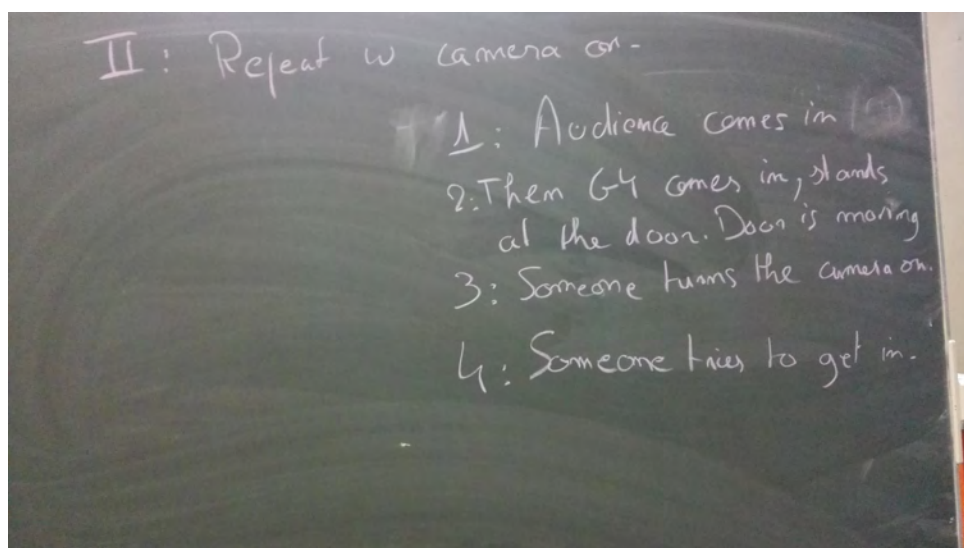 II: Repeat w camera on-
1: Audience comes in
2: Then G4 comes in, stands
at the door. Door is moving
3: Someone turns the camera on.
4: Someone tries to get in.